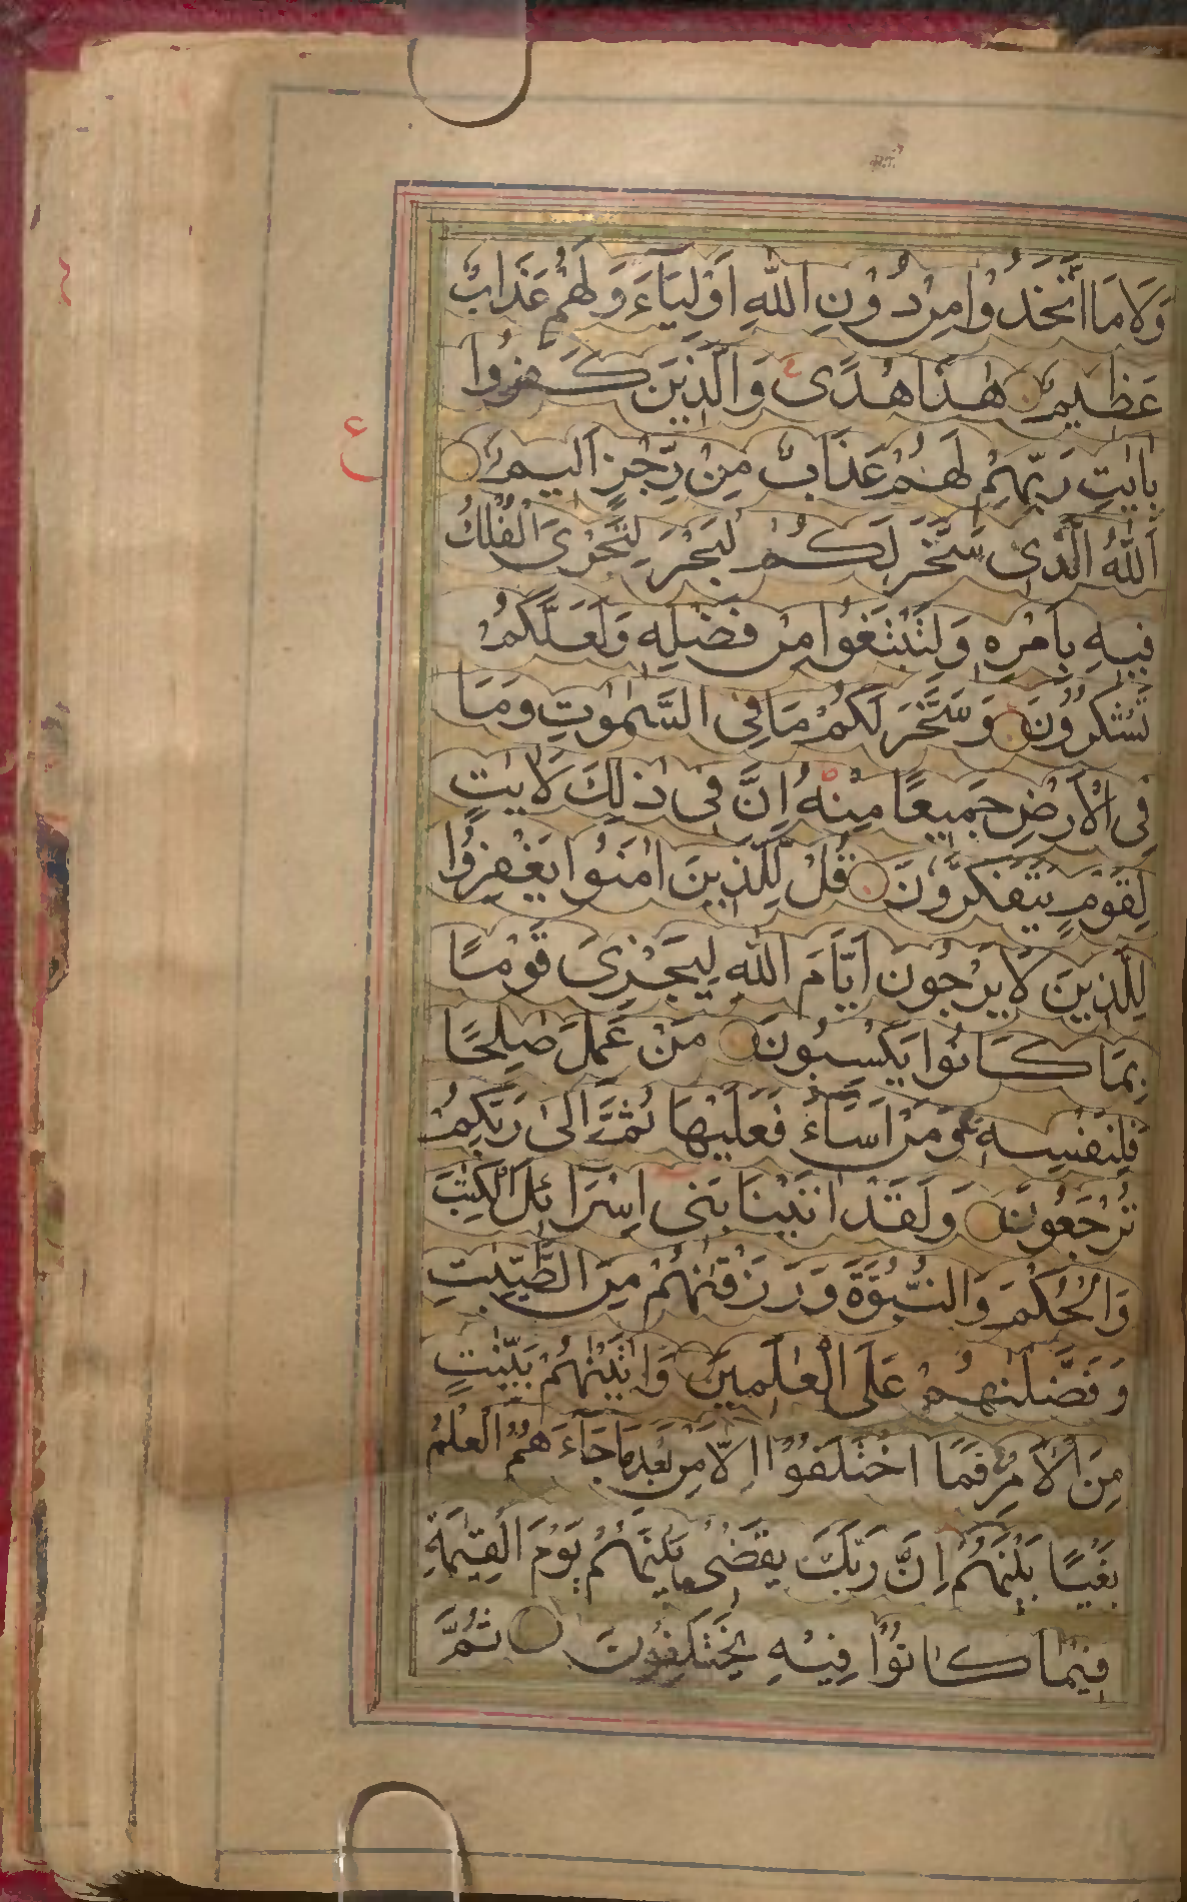 وَلَا مَا اتَّخَذُوْا مِنْ دُوْنِ اللّٰهِ اَوْلِيَآءَ وَلَهُمْ عَذَابٌ
عَظِيمٌ هٰذَا هُدًى وَالَّذِيْنَ كَفَرُوْا
بِاٰيٰتِ رَبِّهِمْ لَهُمْ عَذَابٌ مِنْ رِّجْزٍ اَلِيمٌ
اَللّٰهُ الَّذِى سَخَّرَ لَكُمُ لْبَحْرَ لِتَجْرِىَ الْفُلْكُ
فِيهِ بِاَمْرِهِ وَلِتَبْتَغُوْا مِنْ فَضْلِهِ وَلَعَلَّكُمْ
تَشْكُرُوْنَ وَسَخَّرَ لَكُمْ مَا فِى السَّمٰوٰتِ وَمَا
فِى الْاَرْضِ جَمِيعًا مِنْهُ اِنَّ فِى ذٰلِكَ لَاٰيٰتٍ
لِقَوْمٍ يَتَفَكَّرُوْنَ قُلْ لِلَّذِيْنَ اٰمَنُوْا يَغْفِرُوْا
لِلَّذِيْنَ لَا يَرْجُوْنَ اَيَّامَ اللّٰهِ لِيَجْزِىَ قَوْمًا
بِمَا كَانُوْا يَكْسِبُوْنَ مَنْ عَمِلَ صٰلِحًا
فَلِنَفْسِهِ وَمَنْ اَسَآءَ فَعَلَيْهَا ثُمَّ اِلٰى رَبِّكُمْ
تُرْجَعُوْنَ وَلَقَدْ اٰتَيْنَا بَنِى اِسْرَآئِلَ الْكِتٰبَ
وَالْحُكْمَ وَالنُّبُوَّةَ وَرَزَقْنٰهُمْ مِنَ الطَّيِّبٰتِ
وَفَضَّلْنٰهُمْ عَلَى الْعٰلَمِيْنَ وَاٰتَيْنٰهُمْ بَيِّنٰتٍ
مِنَ الْاَمْرِ فَمَا اخْتَلَفُوْا اِلَّا مِنْ بَعْدِ مَا جَآءَهُمُ الْعِلْمُ
بَغْيًا بَيْنَهُمْ اِنَّ رَبَّكَ يَقْضِى بَيْنَهُمْ يَوْمَ الْقِيٰمَةِ
فِيْمَا كَانُوْا فِيْهِ يَخْتَلِفُوْنَ ثُمَّ